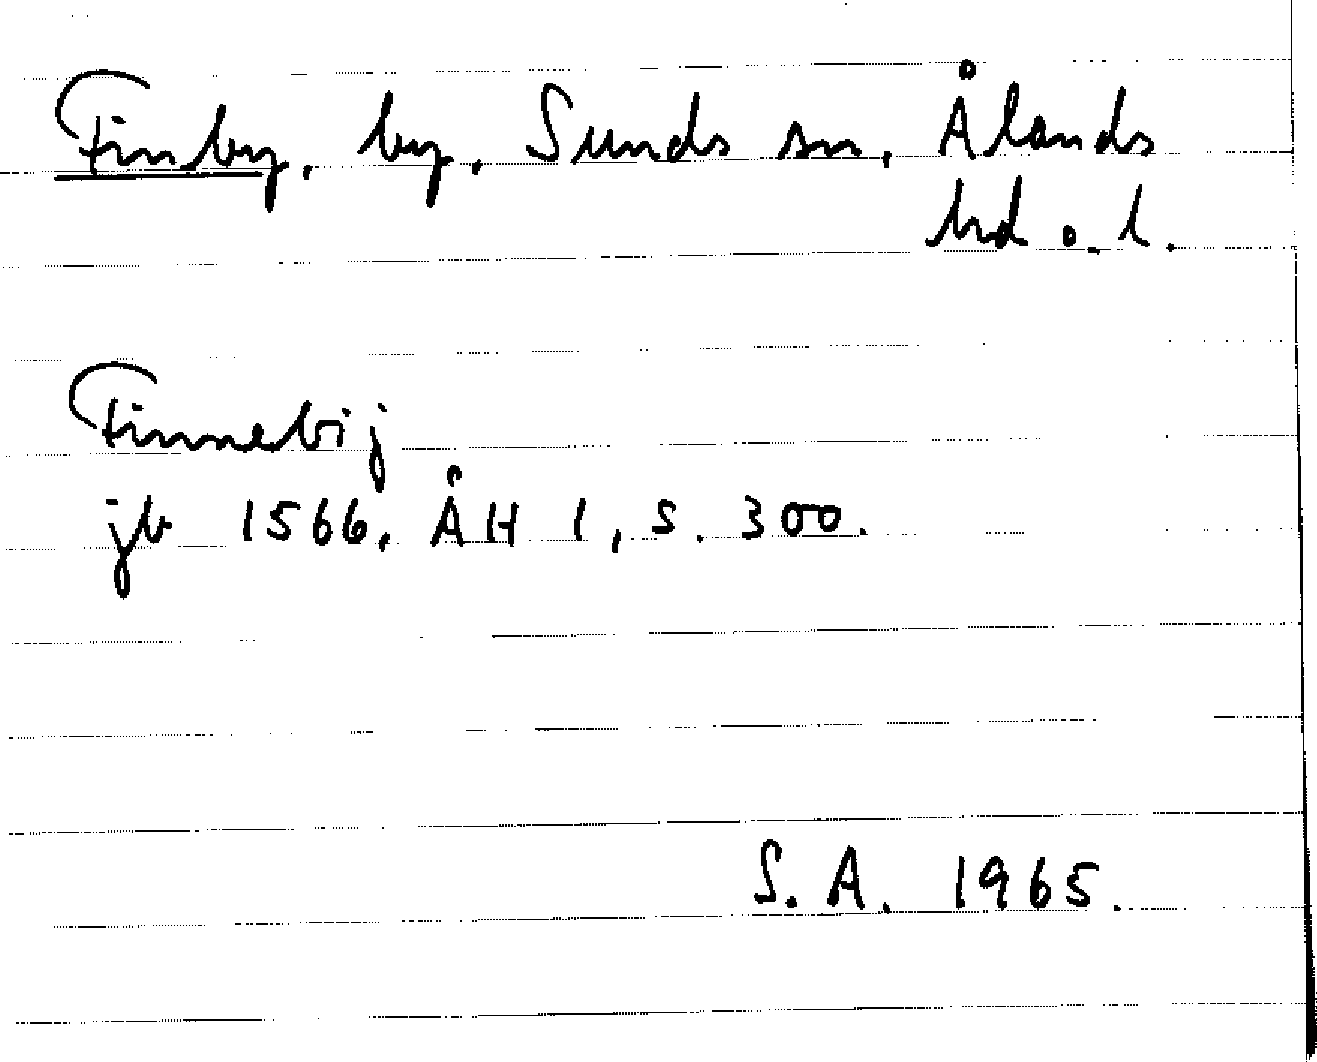 Finby, by, Sunds sn, Ålands
hd o. l.
Finnebij
jb 1566, ÅH 1, s. 300.
S. A. 1965.